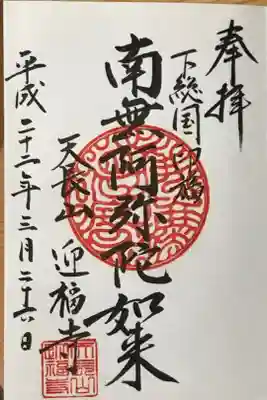 奉拝
下総国印旛
南無阿弥陀如来
天長山 迎福寺
平成二十二年三月二十六日